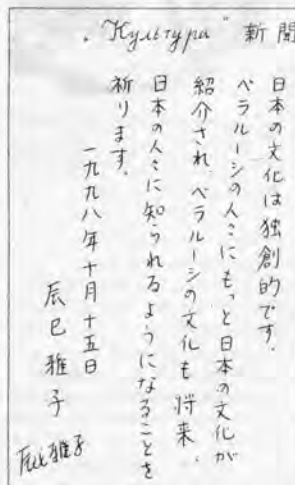 „Культура" 新聞
日本の文化は独創的です.
ベラルーシの人々にもっと日本の文化が
紹介され、ベラルーシの文化も将来、
日本の人々に知られるようになることを
祈ります.
一九九八年十月十五日
辰巳雅子
辰巳雅子